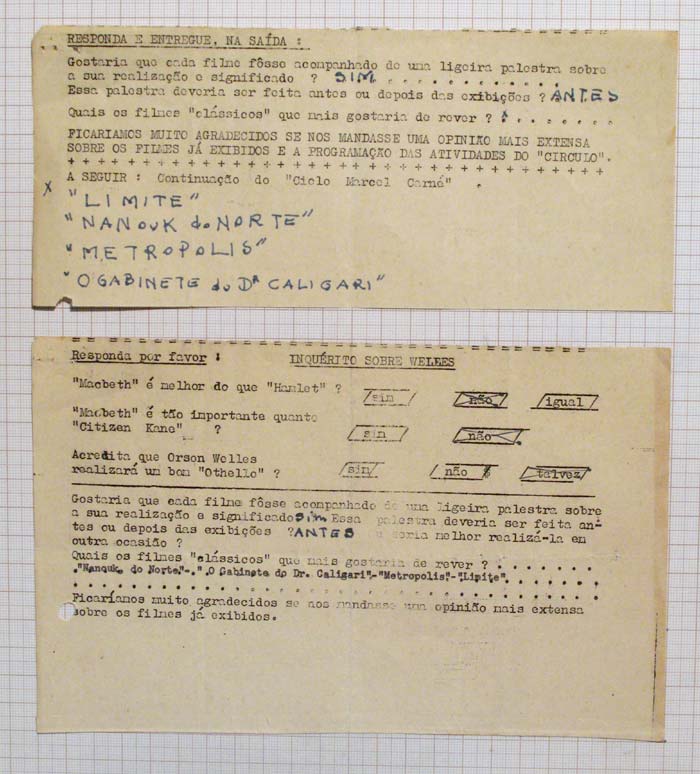 RESPONDA E ENTREGUE, NA SAÍDA :
Gostaria que cada filme fôsse acompanhado de uma ligeira palestra sobre
a sua realização e significado ? SIM . . . . . . . . . . . . . .
Essa palestra deveria ser feita antes ou depois das exibições ? ANTES
Quais os filmes "clássicos" que mais gostaria de rever ? . . . . . . . .
FICARIAMOS MUITO AGRADECIDOS SE NOS MANDASSE UMA OPINIÃO MAIS EXTENSA
SOBRE OS FILMES JÁ EXIBIDOS E A PROGRAMAÇÃO DAS ATIVIDADES DO "CIRCULO".
+ + + + + + + + + + + + + + + + + + + + + + + + + + + + + + + + + + +
A SEGUIR : Continuação do "Ciclo Marcel Carné" .
X "LIMITE"
"NANOUK do NORTE"
"METROPOLIS"
"O GABINETE do DR CALIGARI"
Responda por favor : INQUÉRITO SOBRE WELLES
"Macbeth" é melhor do que "Hamlet" ? /sim / /não / /igual /
"Macbeth" é tão importante quanto
"Citizen Kane" ? /sim / /não /
Acredita que Orson Welles
realizará um bom "Othello" ? /sim/ /não / /talvez/
Gostaria que cada filme fôsse acompanhado de uma ligeira palestra sobre
a sua realização e significado Sim Essa palestra deveria ser feita an-
tes ou depois das exibições ? ANTES ou seria melhor realizá-la em
outra ocasião ?
Quais os filmes "clássicos" que mais gostaria de rever ? . . . . . . .
."Nanouk do Norte"-."O Gabinete do Dr. Caligari"-"Metropolis"-"Limite".
. . . . . . . . . . . . . . . . . . . . . . . . . . . . . . . . . . .
Ficaríamos muito agradecidos se nos mandasse uma opinião mais extensa
sobre os filmes já exibidos.